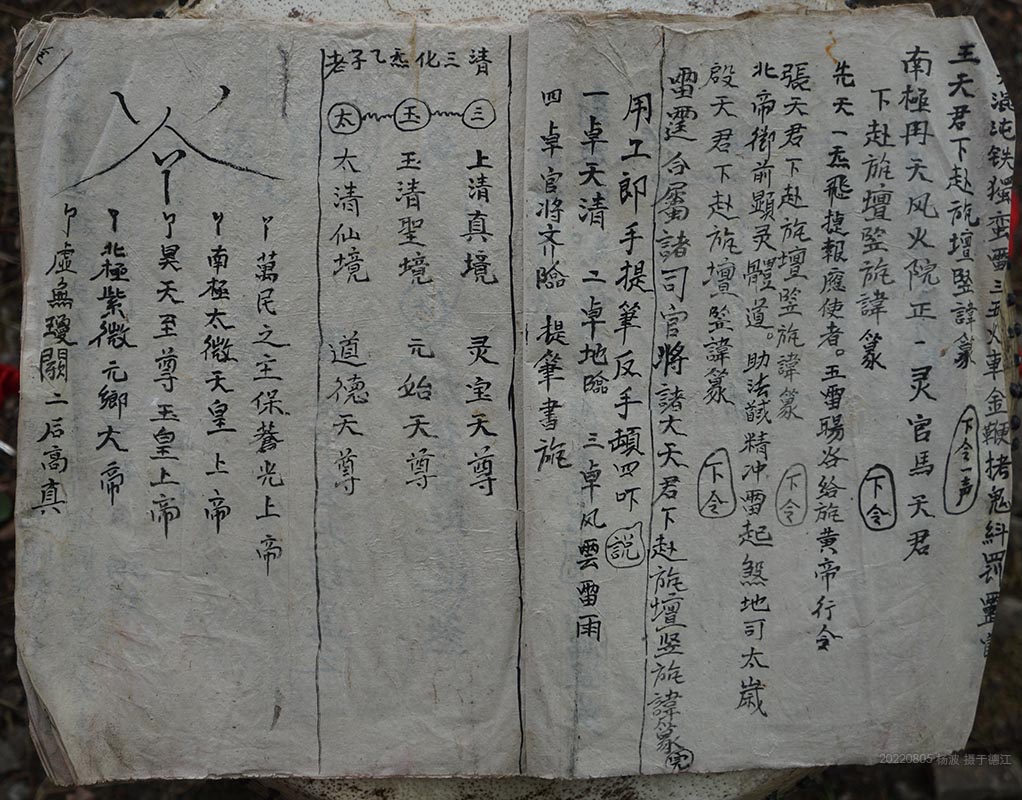 混沌铁獨蛮雷三五火車金鞭拷鬼糾罰靈官
王天君下赴旎壇竪諱篆 下令一声
南極冉天风火院正一灵官馬天君
下赴旎壇竪旎諱篆 下令
先天一炁飛捷報應使者。五雷暘谷给旎黄帝行令
張天君下赴旎壇竪旎諱篆 下令
北帝御前顯灵體道。助法誠精冲雷起煞地司太嵗
殷天君下赴旎壇竪諱篆 下令
雷霆合屬諸司官將諸大天君下赴旎壇竖旎諱篆完
用工郎手提筆反手頓四吓 説
一卓天清 二卓地陰 三卓风雲雷雨
四卓官將齐臨 提筆書旎
老子乙炁化三清
三 上清真境 灵宝天尊
玉 玉清聖境 元始天尊
太 太清仙境 道德天尊
萬民之主保蒼光上帝
南極太微天皇上帝
昊天至尊玉皇上帝
北極紫微元卿大帝
虚無瓊闕二后高真
20220805 杨波 摄于德江